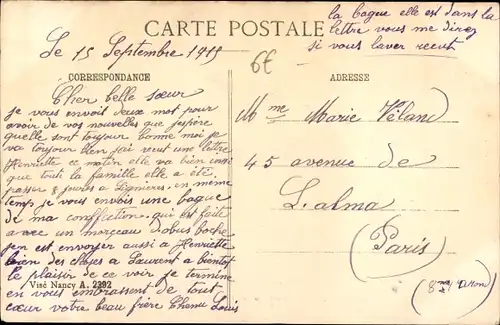 CARTE POSTALE
la bague elle est dans la
lettre vous me direz
si vous laver recut
Le 15 Septembre 1915
6€
CORRESPONDANCE
Cher belle sœur
je vous envoit deux mot pour
avoir de vos nouvelles que j'espère
quelle sont toujour bonne moi je
va toujour bien j'ai recut une lettre
Henriette ce matin elle va bien ainsi
que tout la famille elle a été
passer 8 jours a Lignières. en même
temp je vous envois une bague
de ma confection. qui est faite
avec un morceau Dobus boche
pen est envoyer aussi a Henriette
bien des choses a Laurent a bientot
le plaisir de ce voir je termine
en vous embrassent de tout
cœur votre beau frère Chenu Louis
Visé Nancy A. 2392
ADRESSE
Mme Marie Véland
45 avenue de
L'alma
(Paris)
(8me Arron)